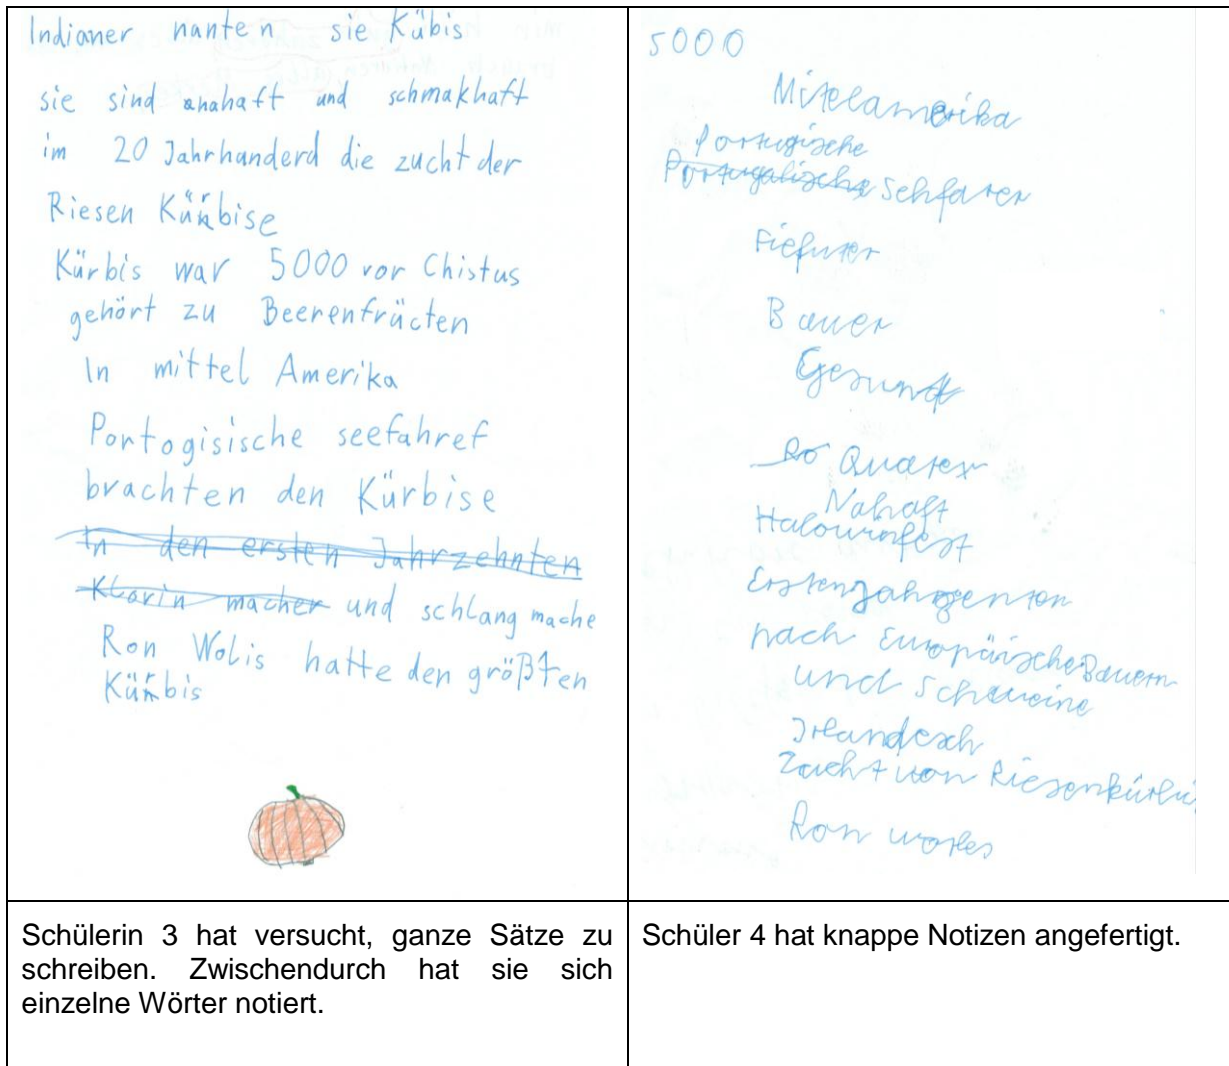 Indianer nanten sie Kübis
sie sind anahaft und schmakhaft
im 20 Jahrhanderd die zucht der
Riesen Kürbise
Kürbis war 5000 vor Chistus
gehört zu Beerenfrücten
In mittel Amerika
Portogisische seefahref
brachten den Kürbise
In den ersten Jahrzehnten
macher und schlang mache
Ron Wolis hatte den größten
Kürbis
5000
Mitelamerika
Portugische
Portugalische Sehfarer
Fiefurer
Bauer
Gesund
Ro Quarex
Nahaft
Halowinfest
Erstenjahrgenten
nach Europäische Bauern
und Schweine
Zucht von Riesenkürbi
Ron wores
Schülerin 3 hat versucht, ganze Sätze zu
schreiben. Zwischendurch hat sie sich
einzelne Wörter notiert.
Schüler 4 hat knappe Notizen angefertigt.